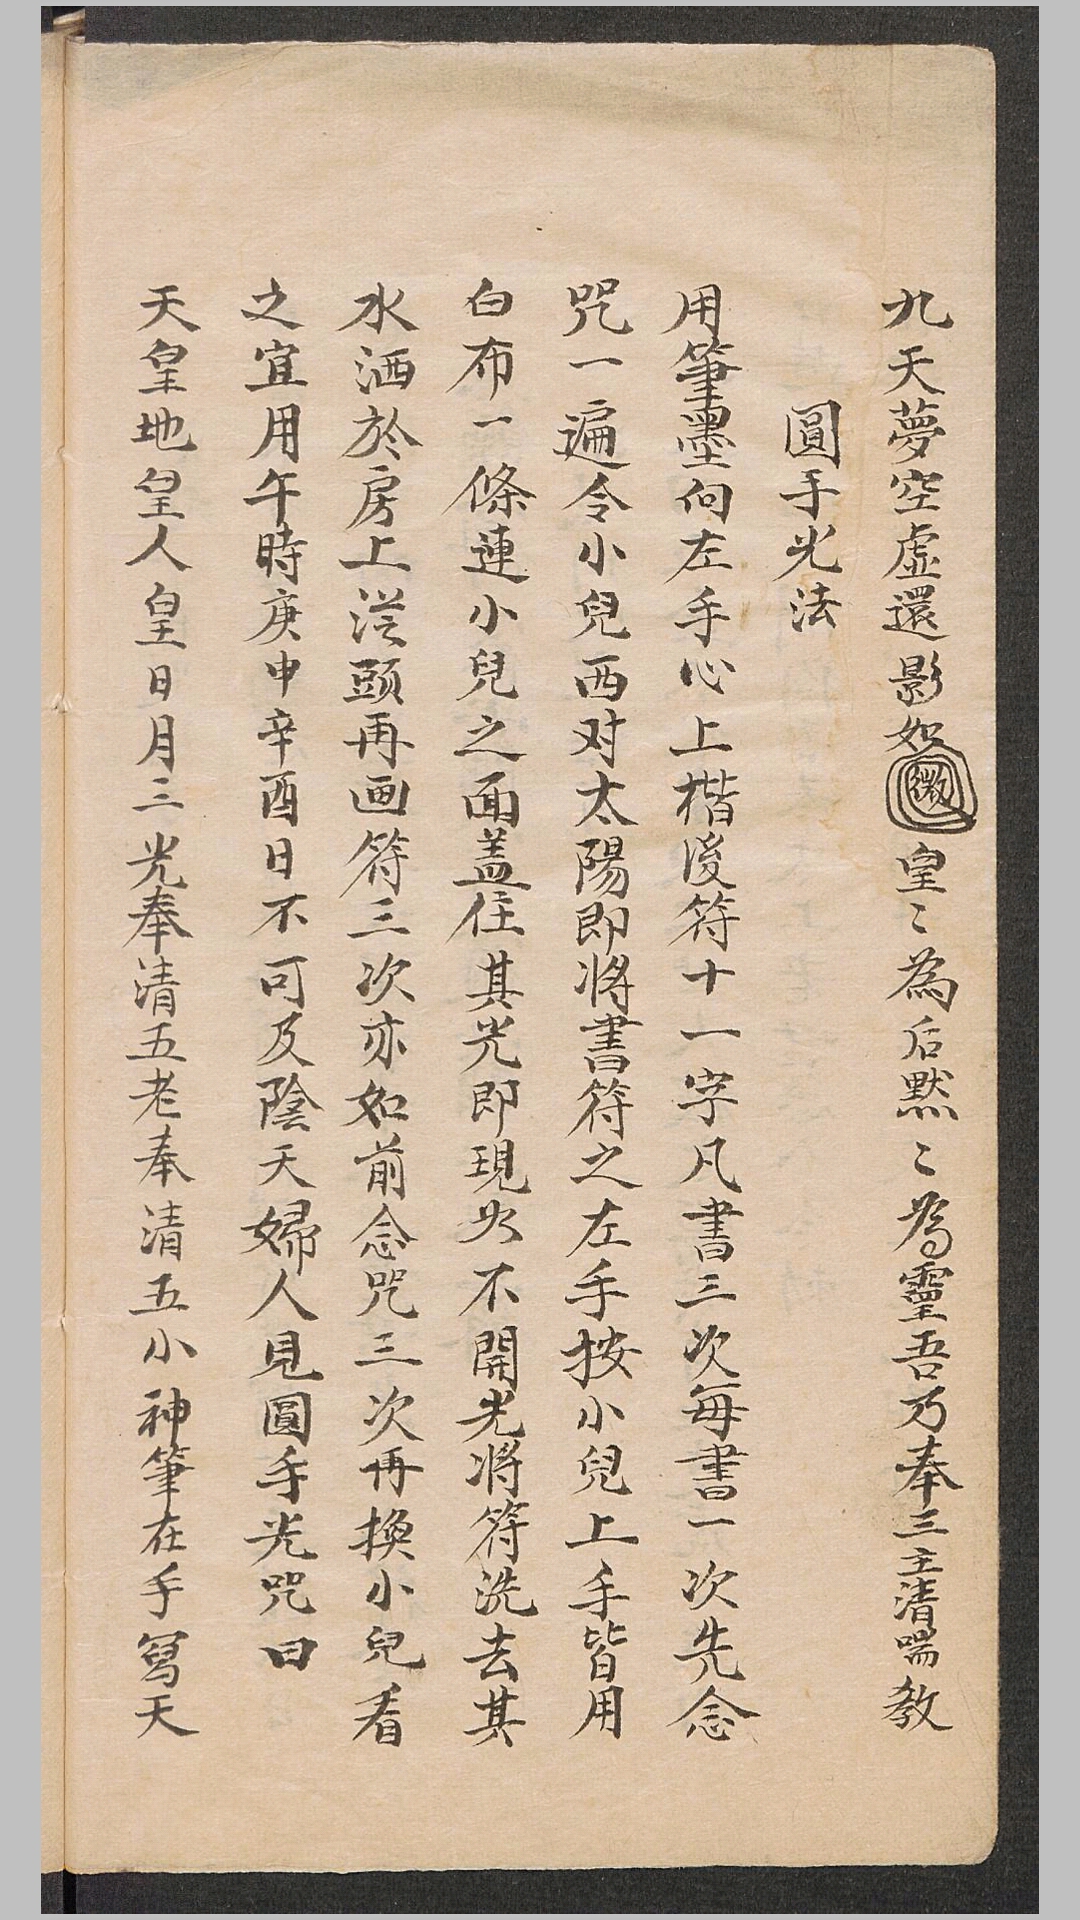 九天夢空虛還影如微皇〻為后默〻為靈吾乃奉三主清喘教
圓手光法
用筆墨向左手心上楷後符十一字凡書三次每書一次先念
咒一遍令小兒西对太陽即將書符之左手按小兒上手皆用
白布一條連小兒之面蓋住其光即現如不開光將符洗去其
水洒於房上從頭再画符三次亦如前念咒三次再換小兒看
之宜用午時庚申辛酉日不可及陰天婦人見圓手光咒曰
天皇地皇人皇日月三光奉清五老奉清五小神筆在手寫天